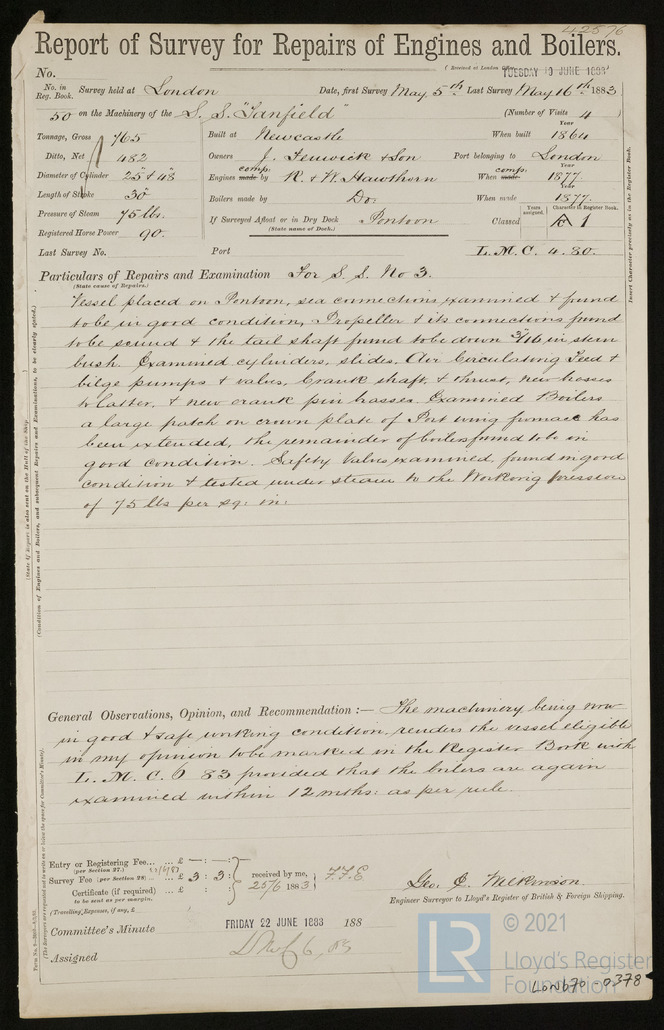 42576
Report of Survey for Repairs of Engines and Boilers.
No.
(Received at London Office
TUESDAY 19 JUNE 1883
No. in Reg. Book. Survey held at London Date, first Survey May 5th Last Survey May 16th 1883
50 on the Machinery of the S. S. "Tanfield" (Number of Visits 4
Tonnage, Gross 765 Built at Newcastle When built Year 1864
Ditto, Net 482 Owners J. Fenwick & Son Port belonging to London
Diameter of Cylinder 25" & 48" Engines made comp. by R. & W. Hawthorn When made comp. Year 1877
Length of Stroke 30" Boilers made by Do. When made Year 1877
Pressure of Steam 75 lbs. If Surveyed Afloat or in Dry Dock Pontoon
(State name of Dock.)
Years assigned. Character in Register Book.
Classed A 1
Registered Horse Power 90.
Last Survey No. Port L. M. C. 4. 80.
Insert Character precisely as in the Register Book.
Particulars of Repairs and Examination For S. S. No 3.
(State cause of Repairs.)
Vessel placed on Pontoon, sea connections examined & found
to be in good condition, Propeller & its connections found
to be sound & the tail shaft found to be down 3/16 in stern
bush. Examined cylinders, slides, Air Circulating Feed &
bilge pumps & valves, Crank shaft, & thrust, new brasses
to latter, & new crank pin brasses. Examined Boilers
a large patch on crown plate of Port wing furnace has
been extended, the remainder of boilers found to be in
good condition. Safety Valves examined, found in good
condition & tested under steam to the Working pressure
of 75 lbs per sq: in:
(State if Report is also sent on the Hull of the Ship.
(Condition of Engines and Boilers, and subsequent Repairs and Examinations, to be clearly stated.)
General Observations, Opinion, and Recommendation :— The machinery being now
in good & safe working condition, renders the vessel eligible
in my opinion to be marked in the Register Book with
L. M. C. 83 provided that the boilers are again
examined within 12 mths: as per rule.
(The Surveyors are requested not to write on or below the space for Committee's Minute).
Entry or Registering Fee... ... £ — : — :
(per Section 27.)
Survey Fee (per Section 28) ... £ 3 : 3 :
Certificate (if required) ... £ : :
to be sent as per margin.
(Travelling Expenses, if any, £
received by me,
25/6 1883
F.F.E
Geo. C. Wilkinson
Engineer Surveyor to Lloyd's Register of British & Foreign Shipping.
Committee's Minute FRIDAY 22 JUNE 1883 188
Assigned
LR © 2021
Lloyd's Register
Foundation
LON670-0378